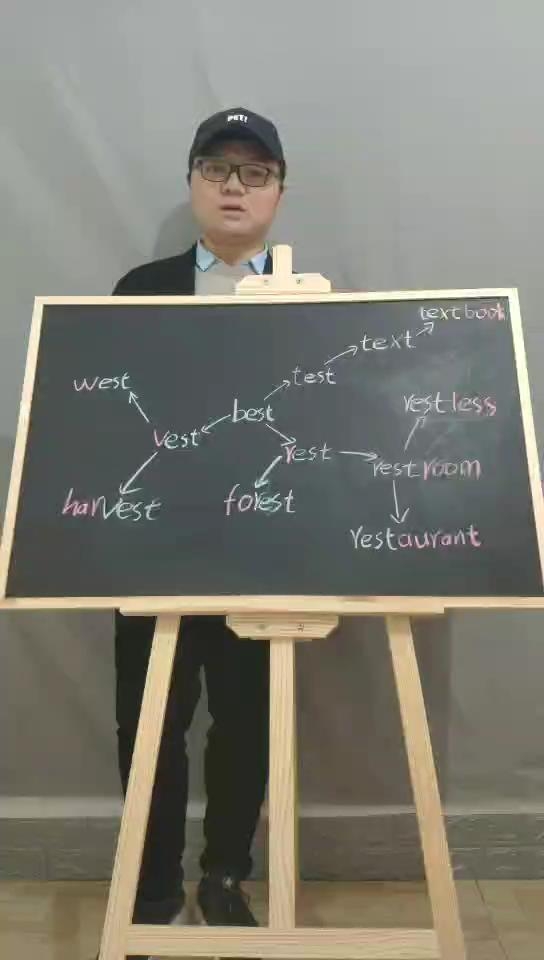 PET!
textbook
text
test
west
restless
best
vest
rest
restroom
harvest
forest
restaurant